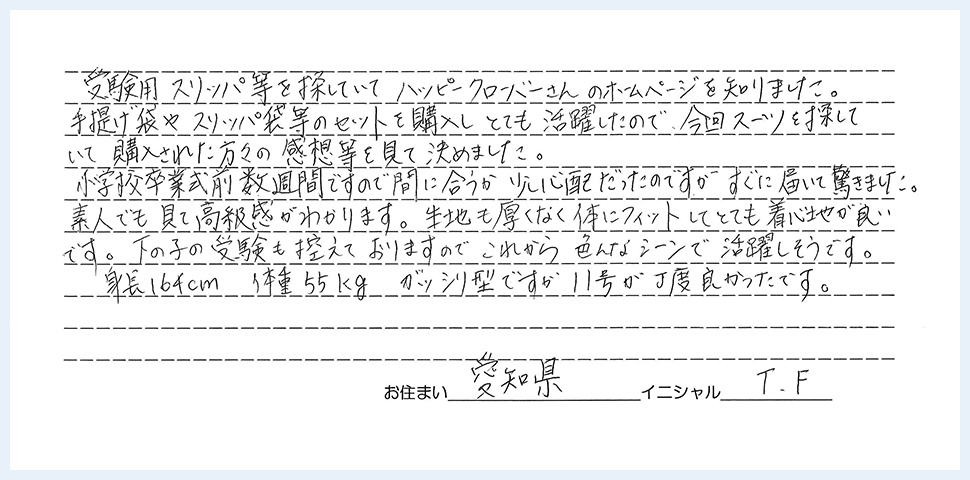 受験用スリッパ等を探していてハッピークローバーさんのホームページを知りました。
手提げ袋やスリッパ袋等のセットを購入しとても活躍したので、今回スーツを探して
いて購入された方々の感想等を見て決めました。
小学校卒業式前数週間ですので間に合うか少し心配だったのですがすぐに届いて驚きました。
素人でも見て高級感がわかります。生地も厚くなく体にフィットしてとても着心地が良い
です。下の子の受験も控えておりますのでこれから色んなシーンで活躍しそうです。
身長164cm 体重55kg ガッシリ型ですが11号が丁度良かったです。
お住まい 愛知県 イニシャル T.F